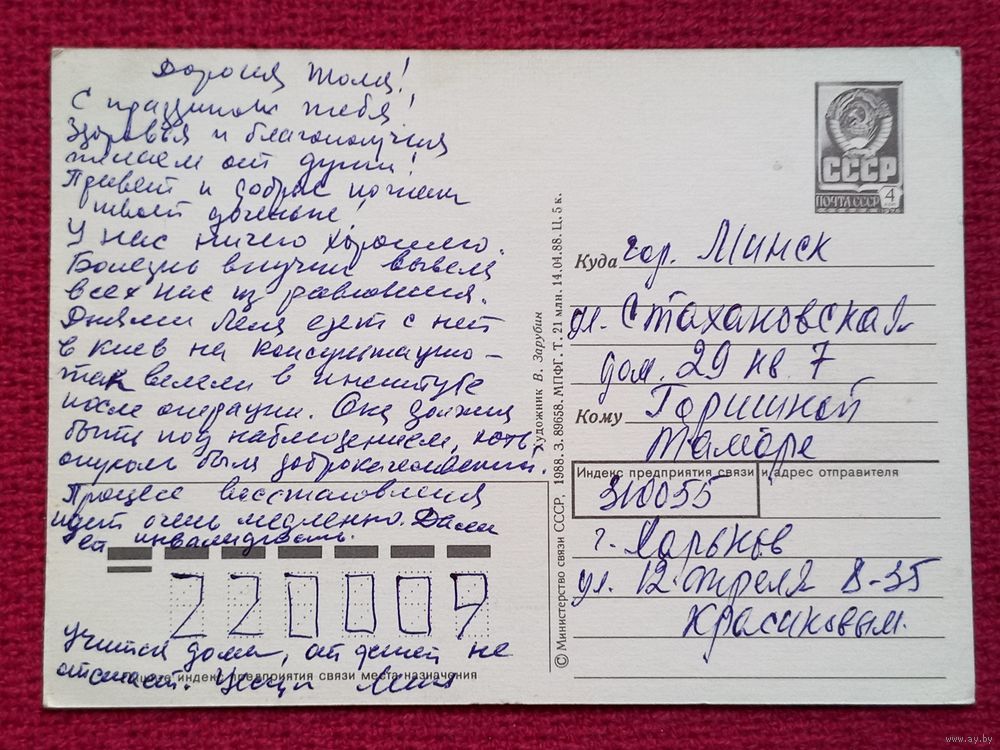 Дорогая Тома!
С праздником тебя!
Здоровья и благополучия
желаем от души!
Привет и добрые пожелания
твоей доченьке!
У нас ничего хорошего.
Болезнь внучки вывела
всех нас из равновесия.
Днями Лена едет с ней
в Киев на консультацию –
так велели в институте
после операции. Она должна
быть под наблюдением, хоть
опухоль была доброкачественной.
Процесс восстановления
идёт очень медленно. Дали
ей инвалидность.
220009
Учится дома, от детей не
отстает. Целую
Пишите индекс предприятия связи места назначения
© Министерство связи СССР, 1988. З. 89658. МПФГ. Т. 21 млн. 14.04.88. Ц. 5 к.
Художник В. Зарубин
СССР
ПОЧТА СССР
4
Куда гор. Минск
ул. Стахановская
дом. 29 кв. 7
Кому Горишной
Тамаре
Индекс предприятия связи и адрес отправителя
310055
г. Харьков
ул. 12 Апреля 8-35
Красиковым.
www.ay.by